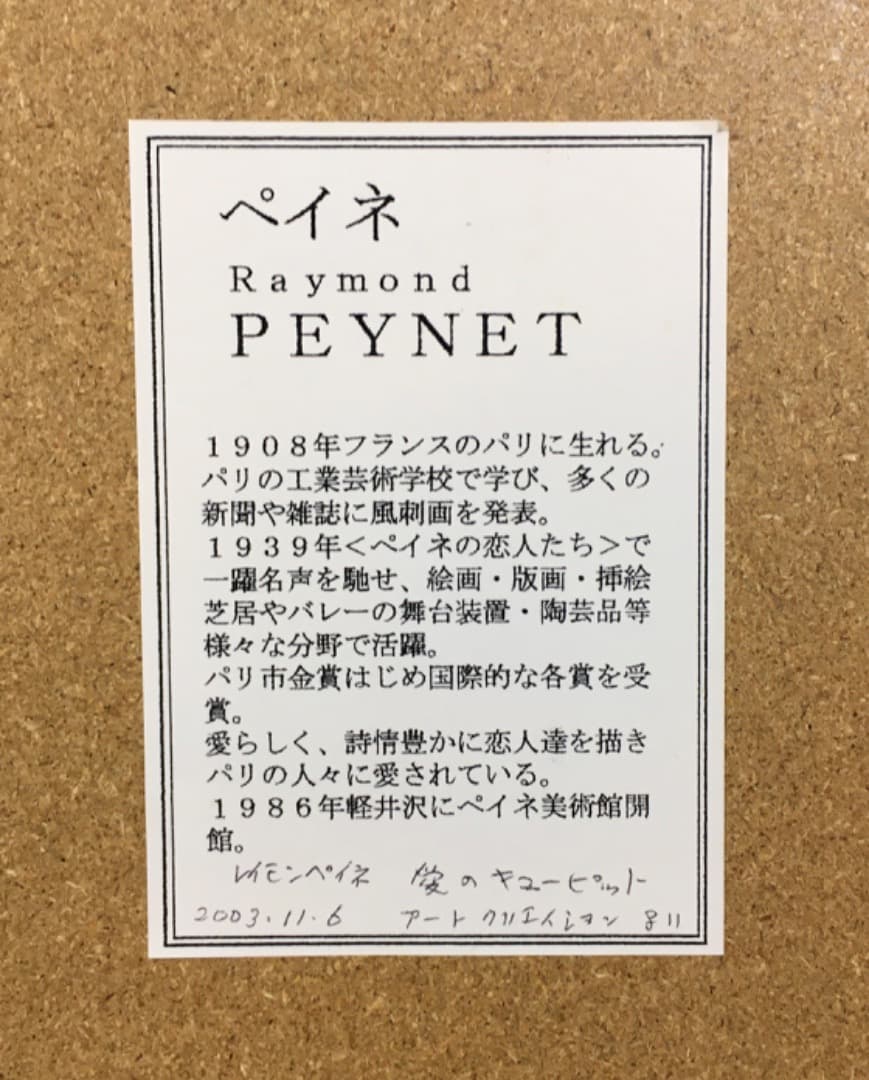 ペイネ
Raymond
PEYNET
1908年フランスのパリに生れる。
パリの工業芸術学校で学び、多くの
新聞や雑誌に風刺画を発表。
1939年<ペイネの恋人たち>で
一躍名声を馳せ、絵画・版画・挿絵
芝居やバレーの舞台装置・陶芸品等
様々な分野で活躍。
パリ市金賞はじめ国際的な各賞を受
賞。
愛らしく、詩情豊かに恋人達を描き
パリの人々に愛されている。
1986年軽井沢にペイネ美術館開
館。
レイモンペイネ 愛のキューピット
2003.11.6 アートクリエイション